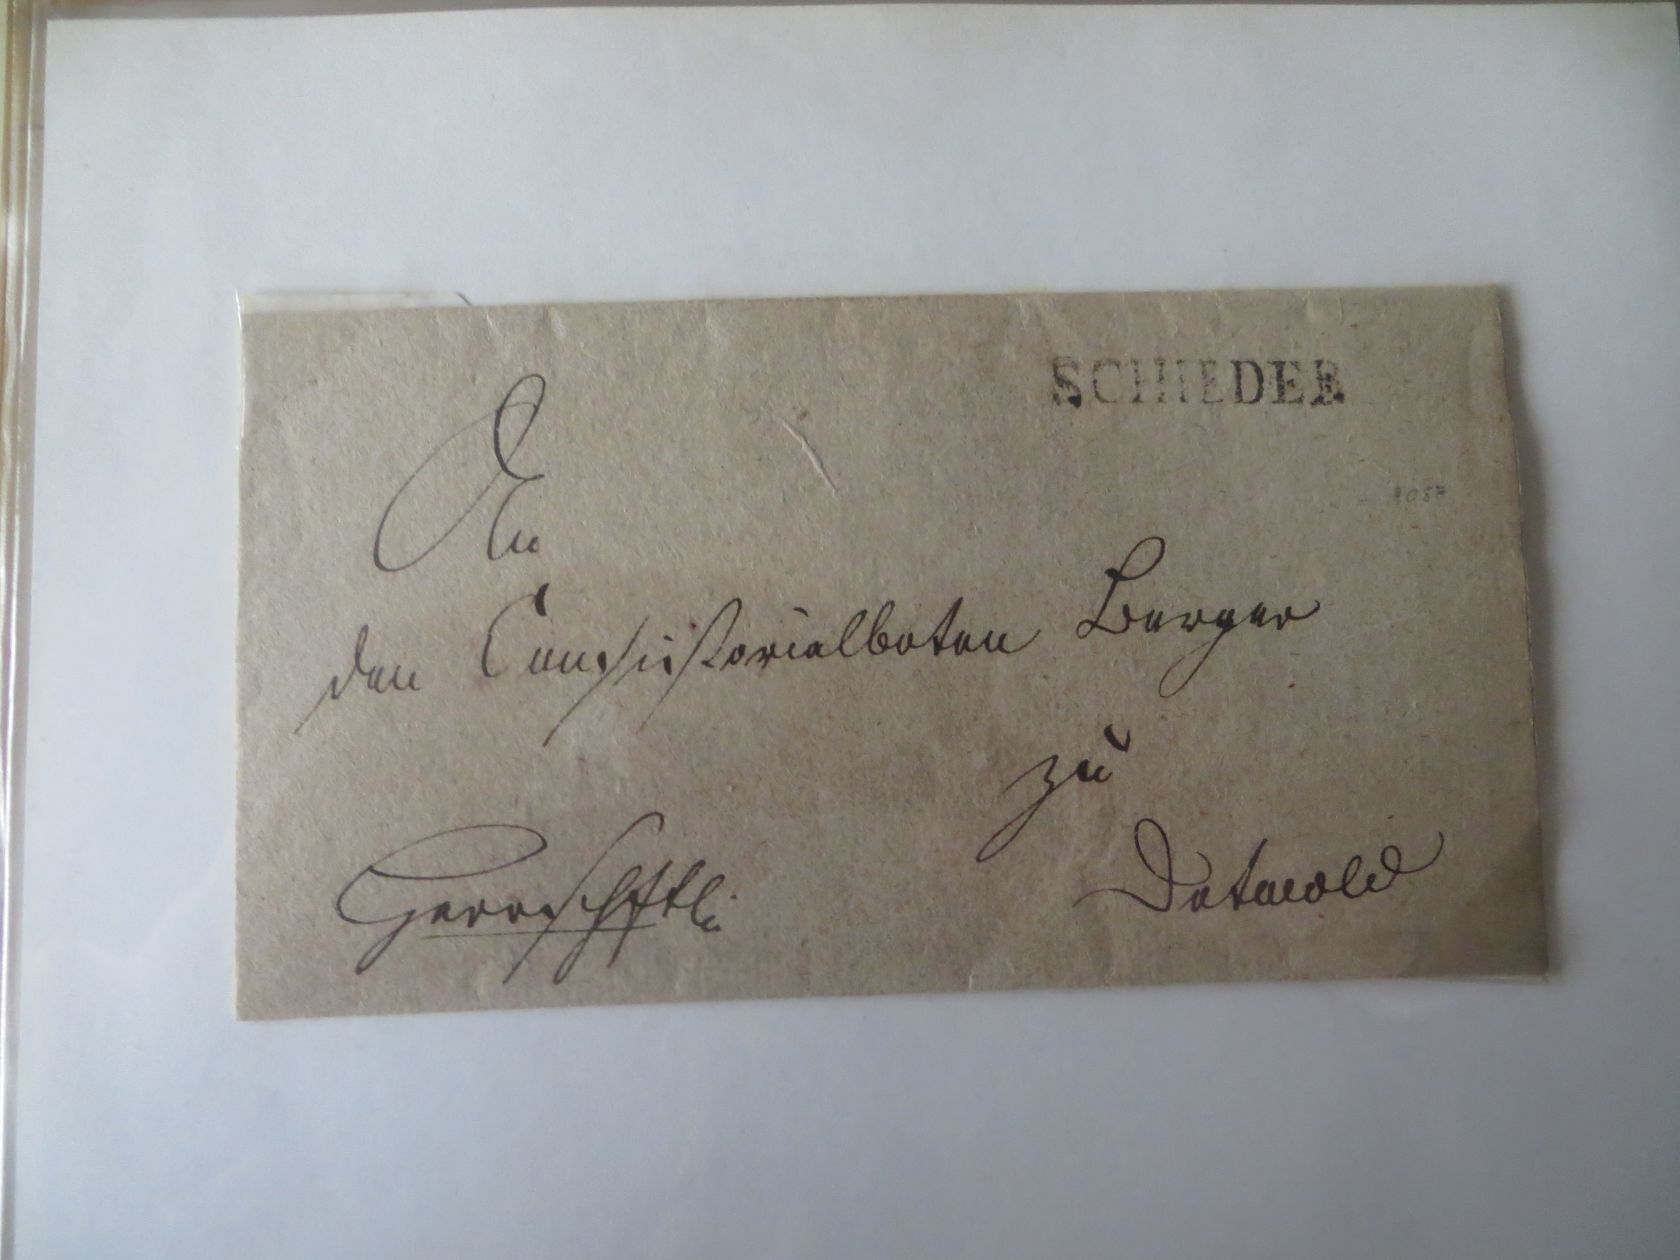 SCHIEDER
An
den Consistorialboten Berger
zu
Detmold
Herrschftl: